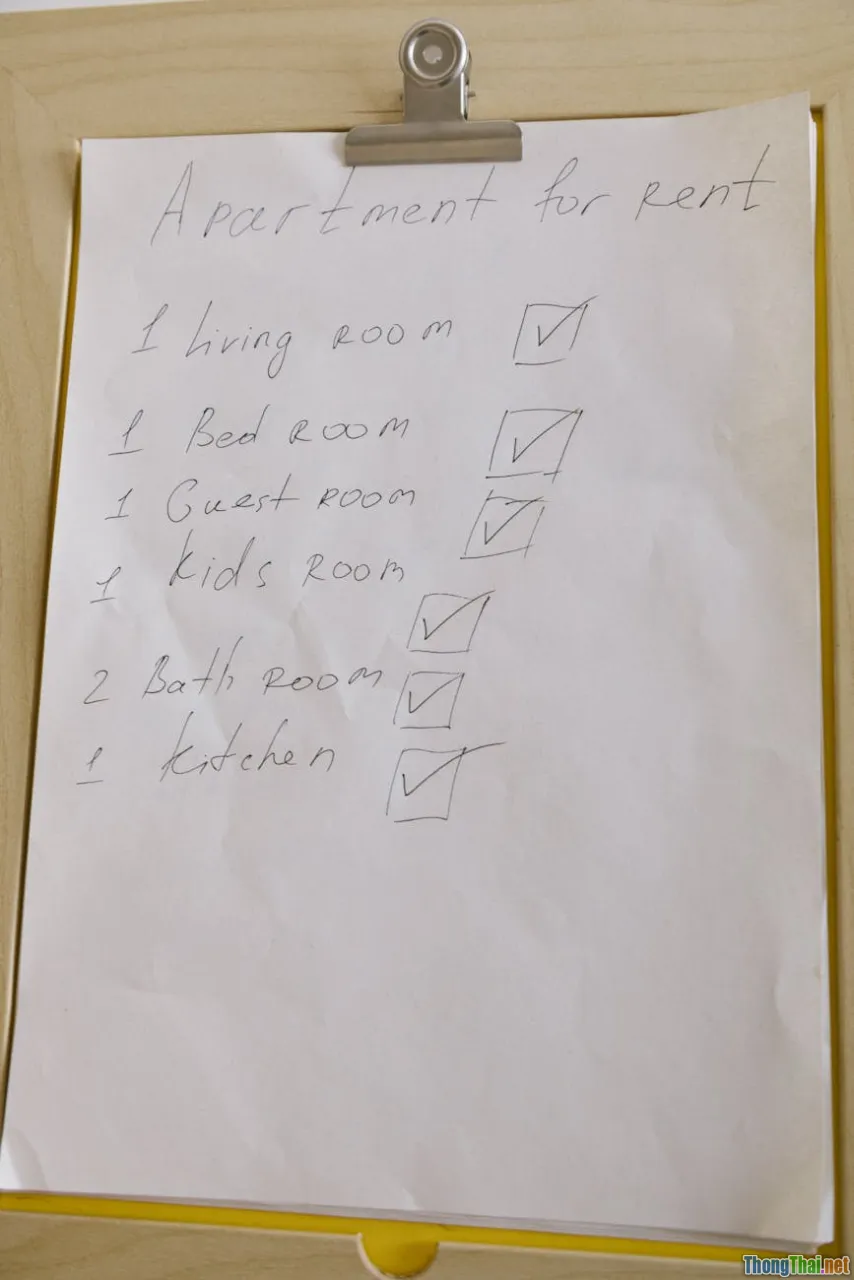 Apartment for Rent
1 Living Room
1 Bed Room
1 Guest Room
1 Kids Room
2 Bath Room
1 Kitchen
ThongThai.net